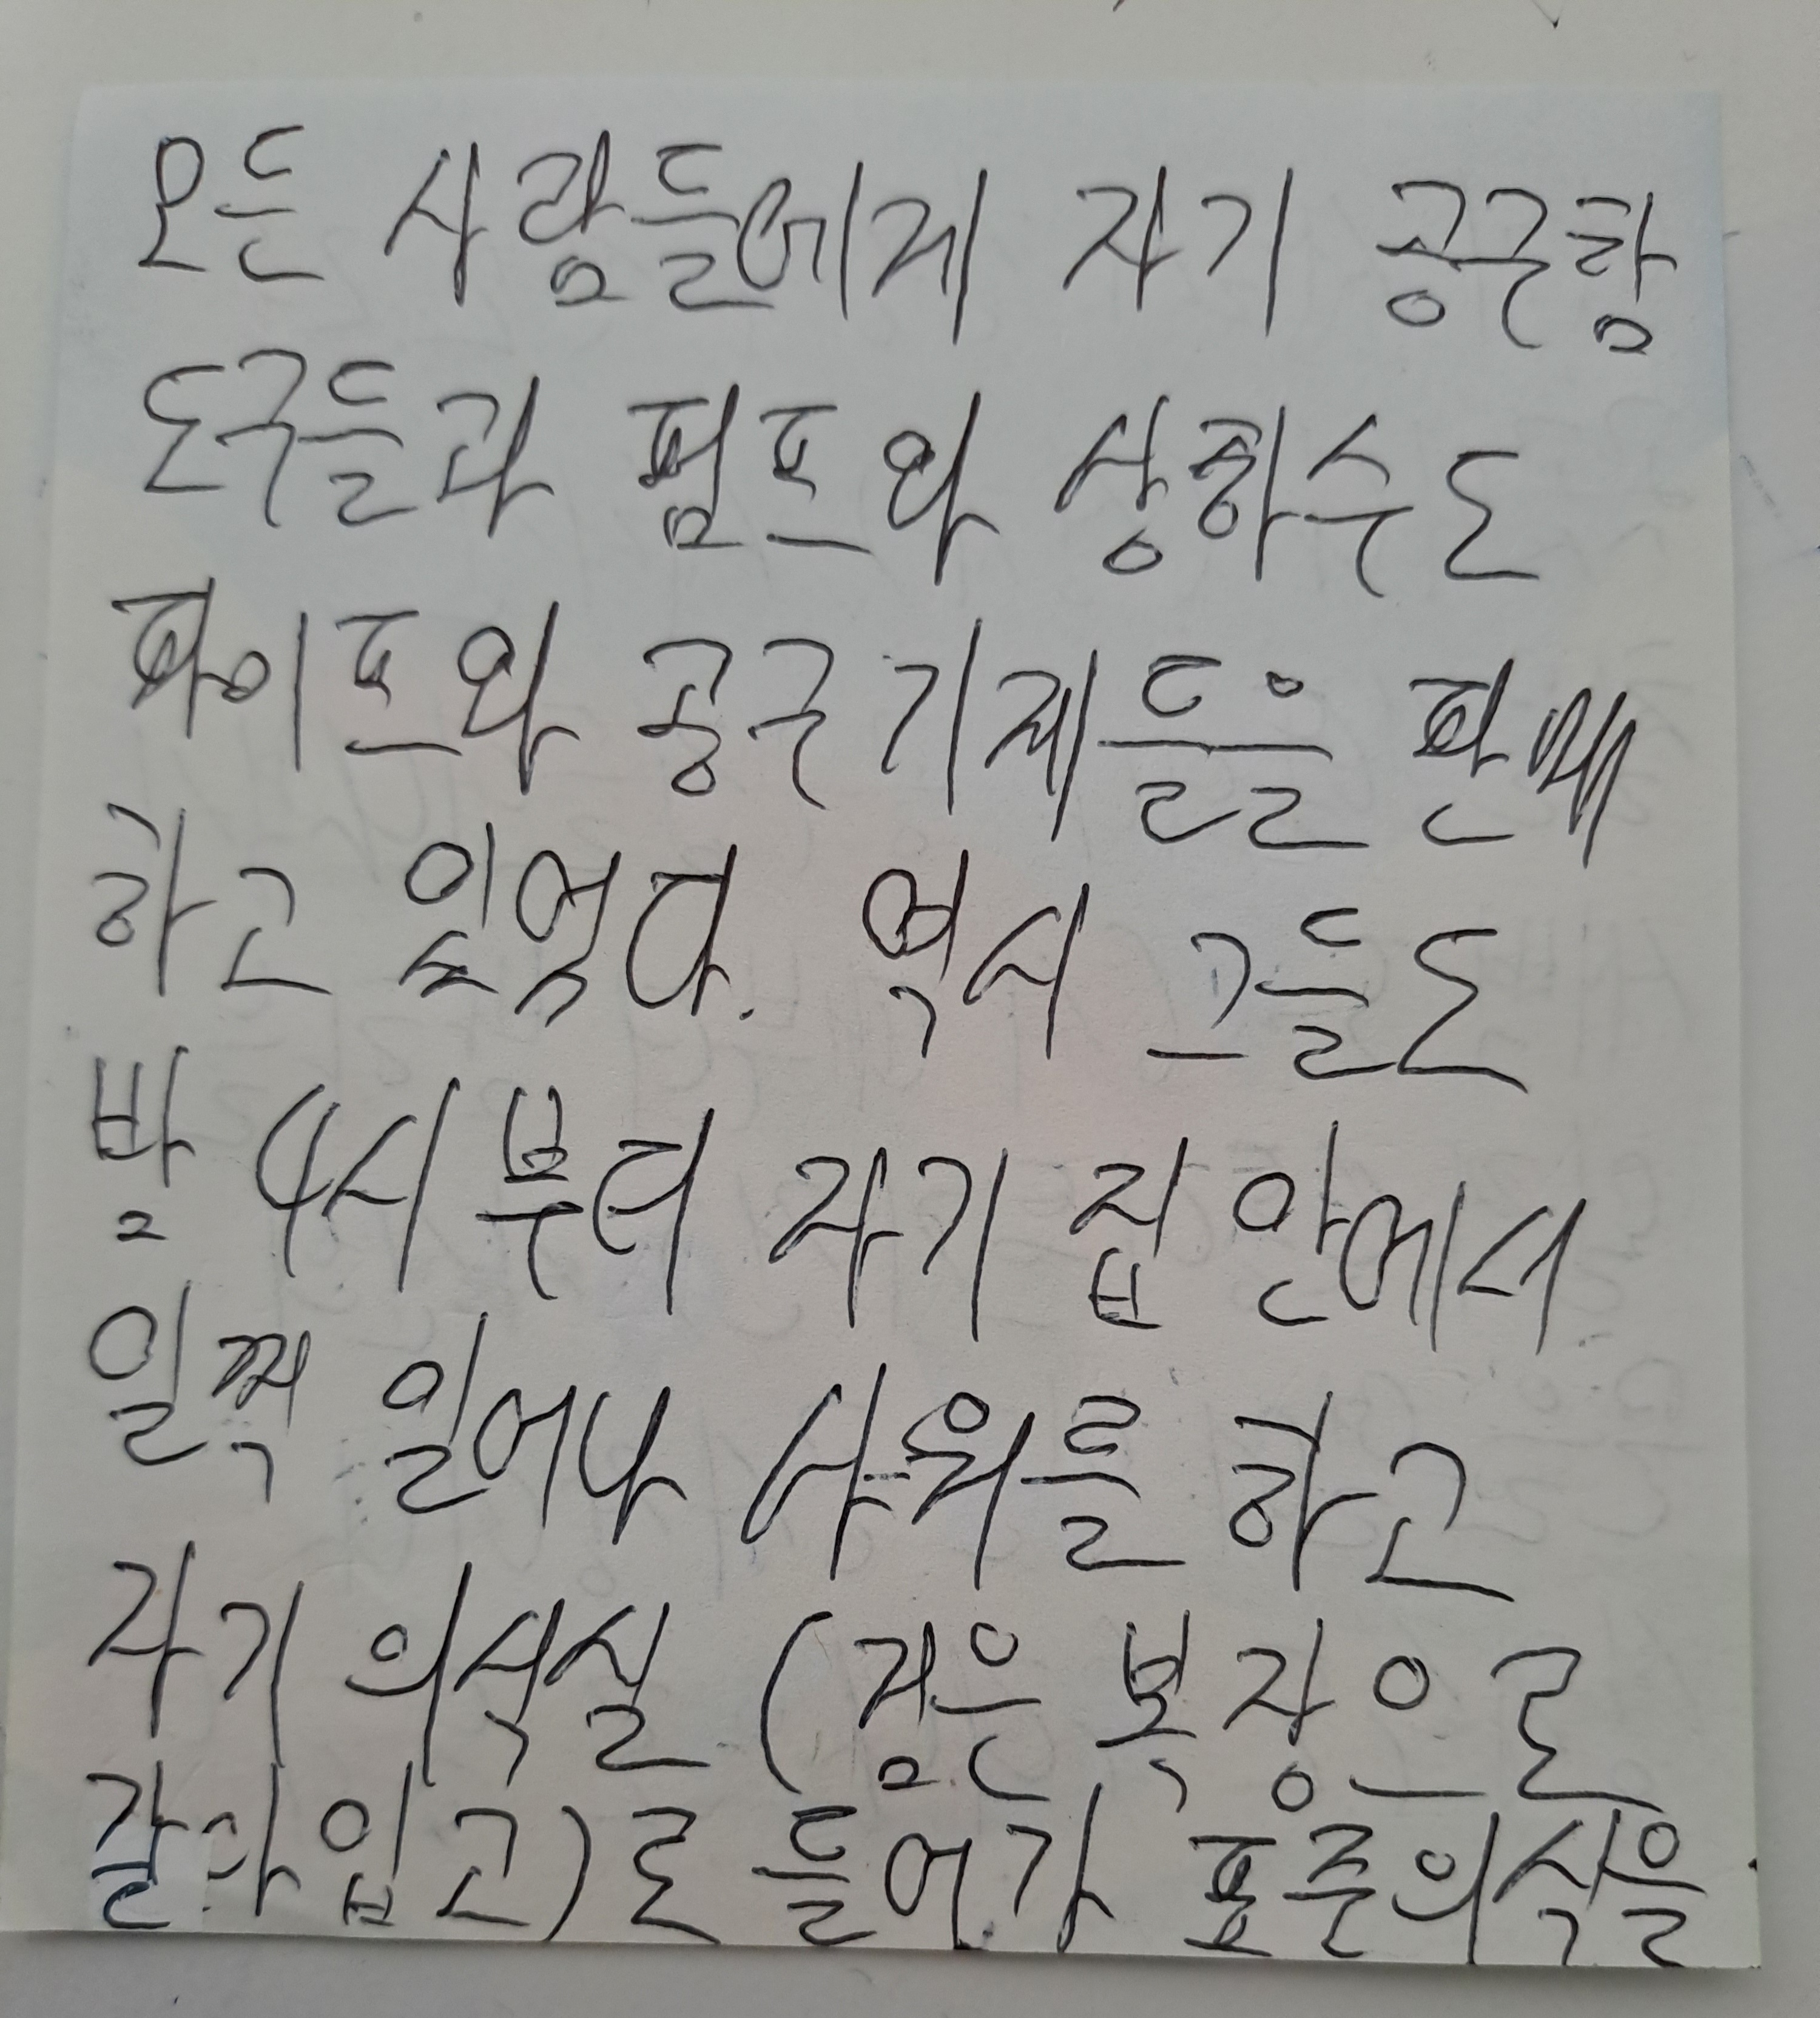 모든 사람들에게 자기 공구함
도구들과 펌프와 상하수도
파이프와 공구 기계들을 판매
하고 있었다. 역시 그들도
밤 4시부터 자기 집 안에서
일찍 일어나 샤워를 하고
자기 의식실 (검은 복장으로
갈아입고)로 들어가 표준의식을